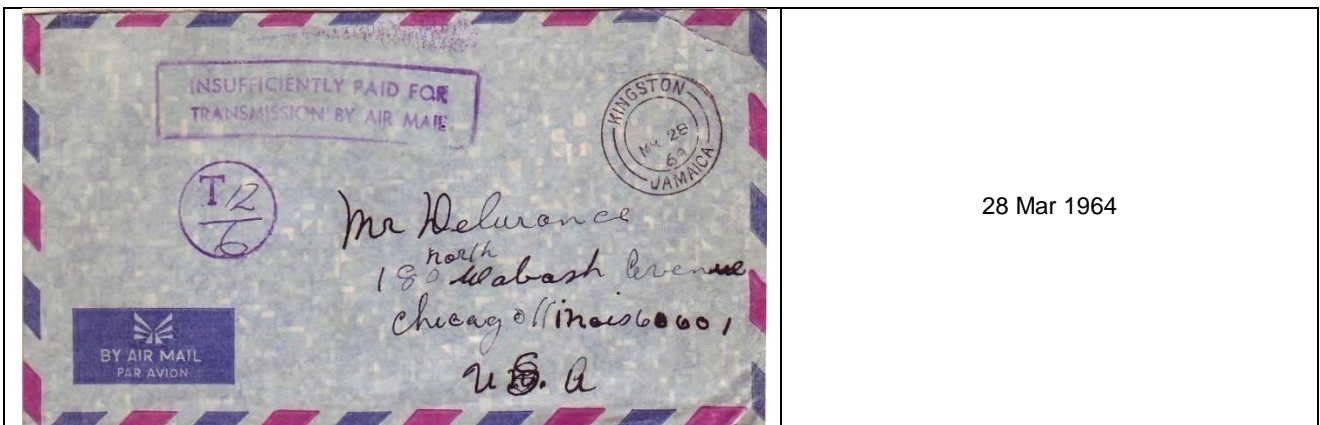 INSUFFICIENTLY PAID FOR
TRANSMISSION BY AIR MAIL
KINGSTON
MR 28
64
JAMAICA
T 12
6
Mr Delurance
north
180 Wabash Avenue
Chicago Illinois 60601
U.S. A
BY AIR MAIL
PAR AVION
28 Mar 1964